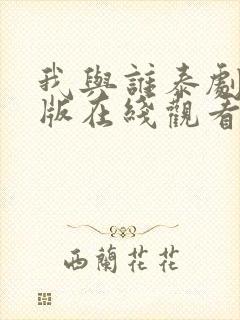 我與誰泰劇
版在綫觀看
西蘭花花